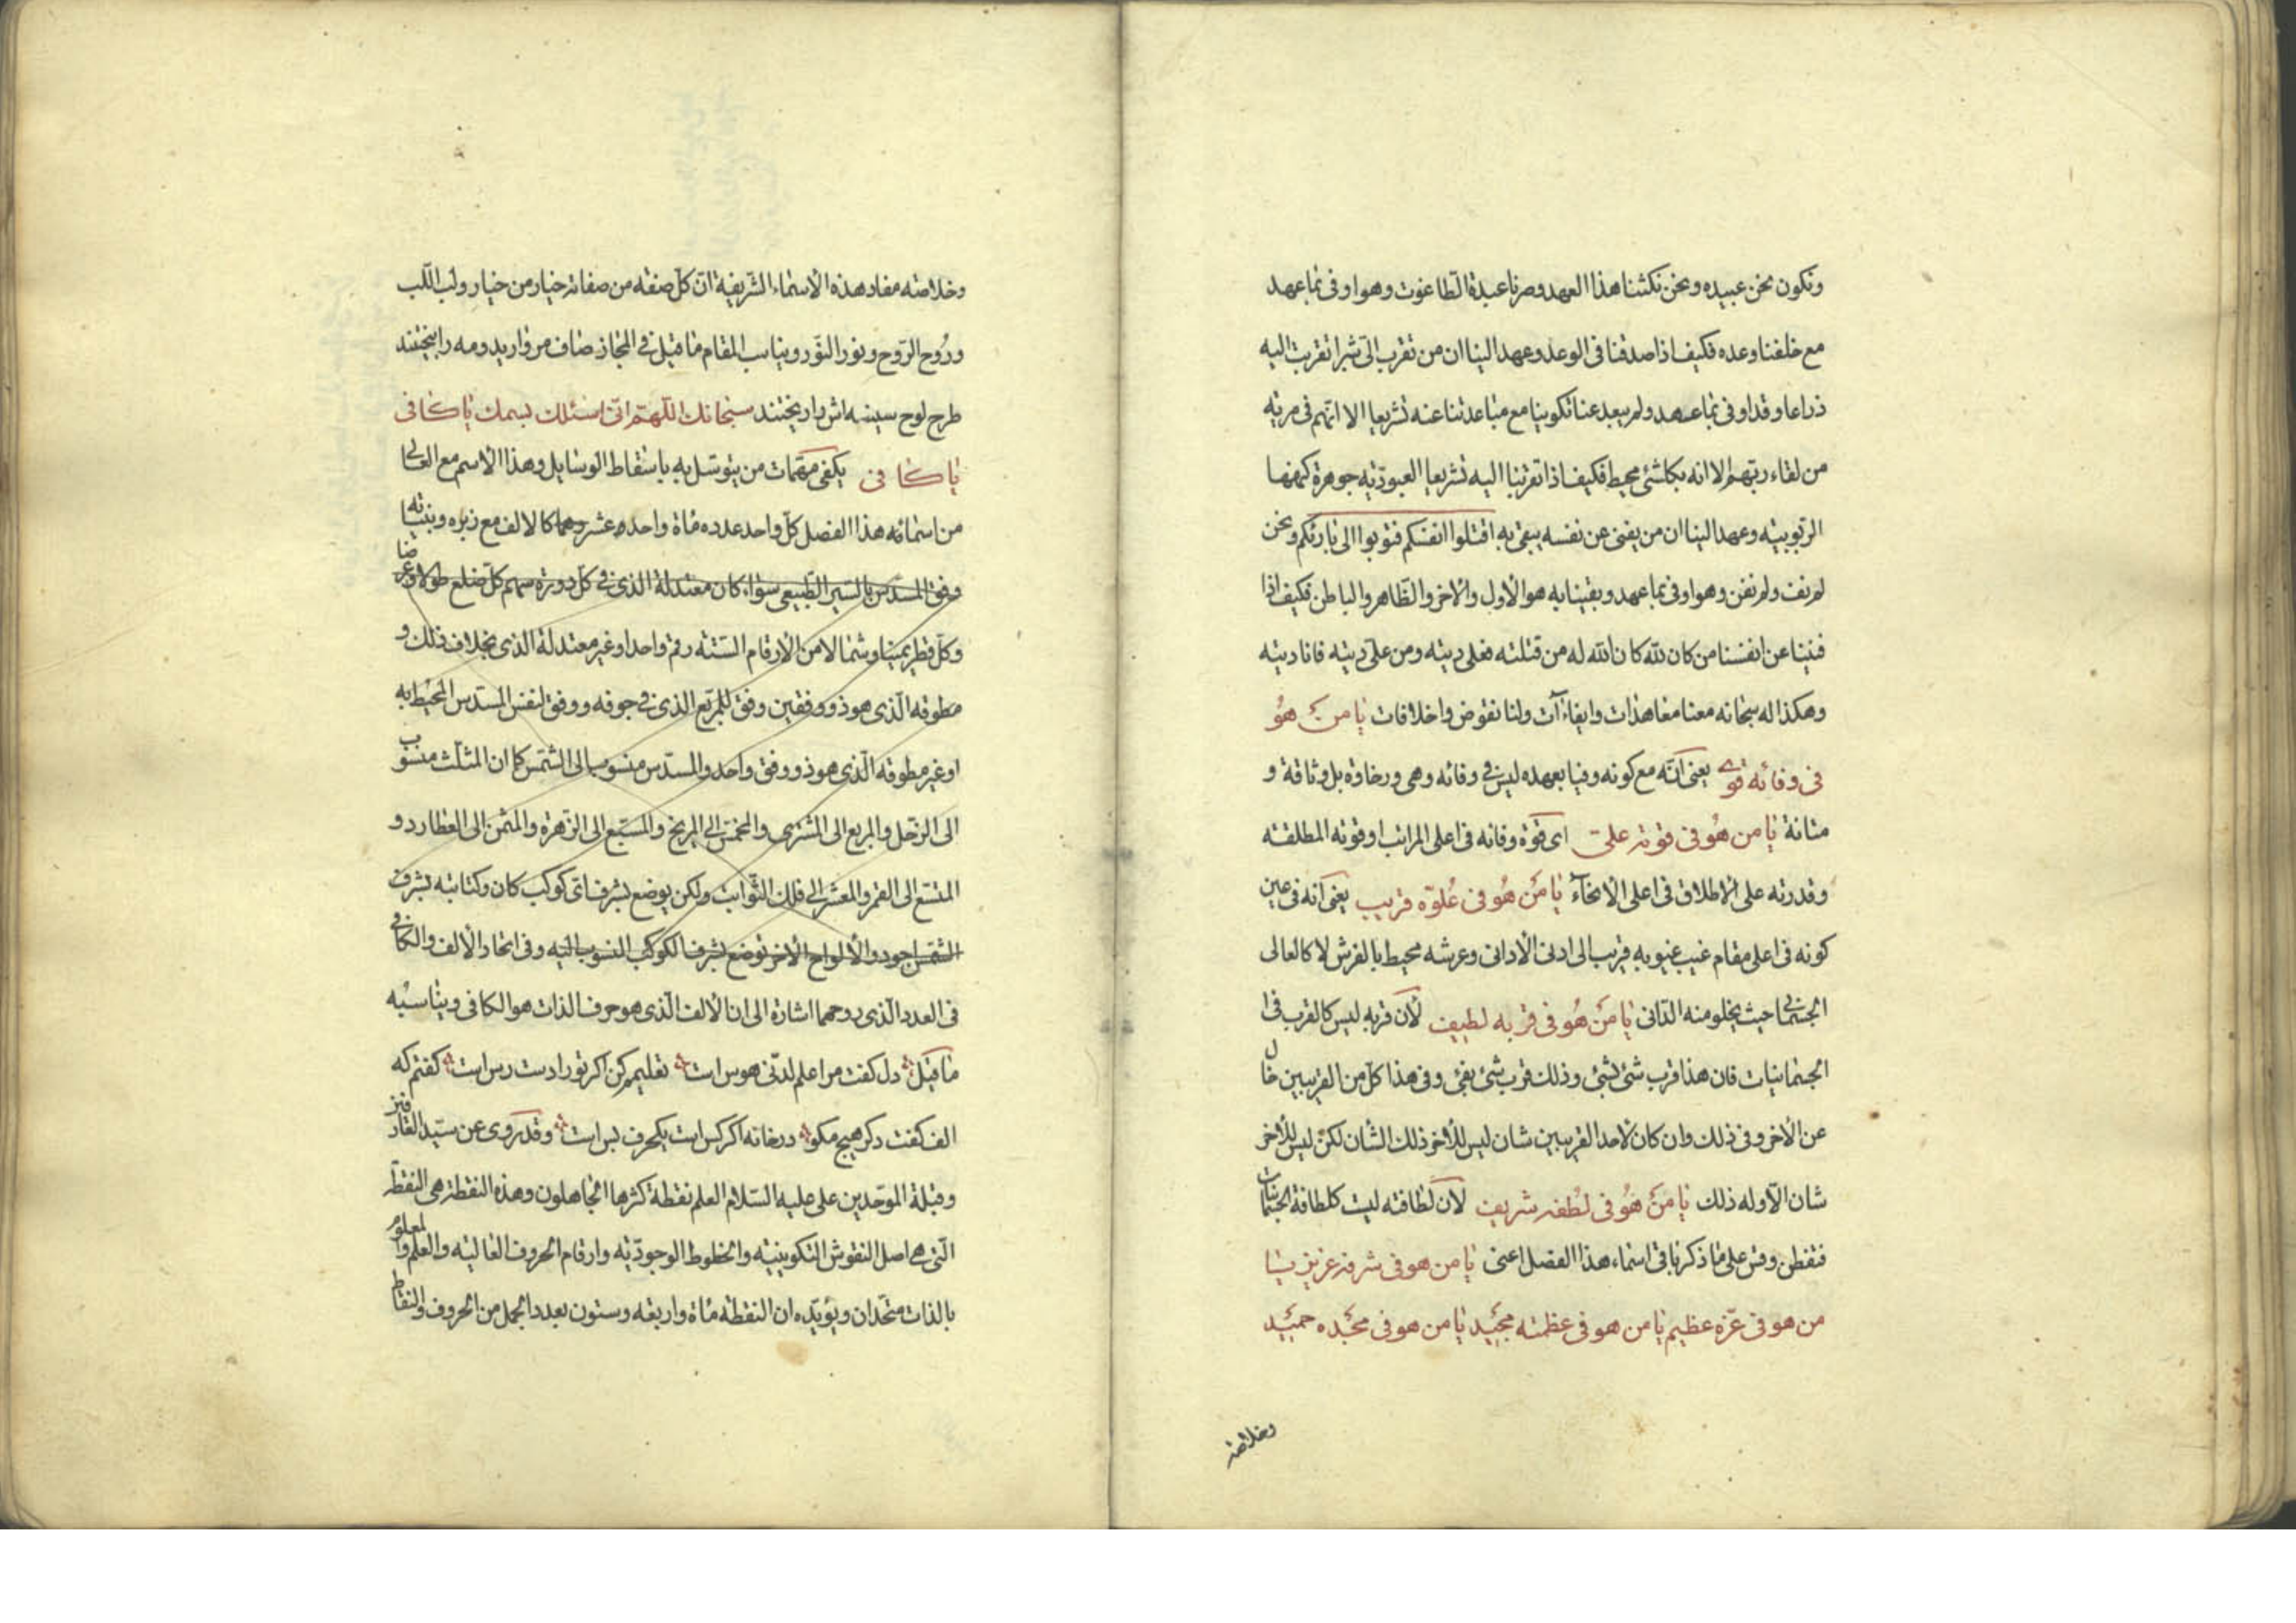 ونكون نحن عبيده ونحن نكثنا هذا العهد وصرنا عبدة الطاغوت وهو اوفى بما عهد
مع خلفنا وعده فكيف اذا صدقنا فى الوعد وعهد الينا ان من تقرب الىّ شبرا تقربت اليه
ذراعا وقد اوفى بما عهد ولم يبعد عنا تكوينا مع مباعدتنا عنه تشريعا الا انهم فى مرية
من لقاء ربهم الا انه بكلشئ محيط فكيف اذا تقربنا اليه تشريعا العبوديّة جوهرة كنهها
الربوبيته وعهد الينا ان من يفنى عن نفسه يبقى به اقتلوا انفسكم فتوبوا الى بارئكم ونحن
لم نف ولم نفن وهو اوفى بما عهد وبقينا به هو الأول والأخر والظاهر والباطن فكيف اذا
فنينا عن انفسنا من كان لله كان الله له من قتلته فعلى ديته ومن علىّ ديته فانا ديته
وهكذا له سبحانه معنا معاهذات وايفاءآت ولنا نقوض واخلافات يا من هُو
فى وفائه قوى يعنى انّه مع كونه وفيا بعهده ليس فى وفائه وهى ورخاوة بل وثاقة و
متانة يا من هُو فى قوته على اى قوّة وفائه فى اعلى المراتب او قوته المطلقته
وقدرته على الاطلاق فى اعلى الأنحاء يا مَن هُو فى عُلوّه قريب يعنى انه فى عين
كونه فى اعلى مقام غيب غيوبه قريب الى ادنى الأدانى وعرشه محيط بالفرش لا كالعالى
الجسمانى حيث يخلو منه الدّانى يا مَن هُو فى قربه لطيف لأن قربه ليس كالقرب فى
الجسمانيات فان هذا قرب شئ بشئ وذلك قرب شئ بفئ وفى هذا كلّ من القريبين خال
عن الأخر وفى ذلك وان كان لأحد القريبين شان ليس للأخر ذلك الشان لكن ليس للأخر
شان الّا وله ذلك يا مَن هُو فى لُطفه شريف لأن لطافته ليست كلطافة الجسمانيات
فتفطن وقس على ما ذكر باقى اسماء هذا الفصل اعنى يا من هو فى شرفه عزيز يا
من هو فى عزّه عظيم يا من هو فى عظمته مجيد يا من هو فى مجده حميد
وخلاصة
وخلاصته مفاد هذه الأسماء الشريفية انّ كلّ صفته من صفاته خيار من خيار ولب اللّب
وروُح الرّوح ونور النّور ويناسب المقام ما قيل فى المجاز صاف مرواريد ومه را بيختند
طرح لوح سينه اش را ريختند سبحانك اللّهمّ انّى اسئلك بسمك يا كافى
يا كافى يكفى مهمّات من يتوسّل به باسقاط الوسايل وهذا الاسم مع العالى
من اسمائه هذا الفصل كلّ واحد عدده ماة واحده عشر وهما كالالف مع زبره وبيّناته
وفق المسدّس بالسّير الطّبيعى سواء كان معتدلة الذى فى كلّ دورة سهم كلّ ضلع طولا وعرضا
وكلّ قطر يمينا وشمالا من الأرقام الستّته رقم واحد او غير معتدلة الذى بخلاف ذلك و
مطوقه الّذى هو ذو وفقين وفق للمربّع الذى فى جوفه ووفق لنفس المسدّس المحيط به
او غير مطوقه الّذى هو ذو وفق واحد والمسدّس منسوب الى الشمس كما ان المثلّث منسوب
الى الزحل والمربع الى المشترى والمخمّس الى المريخ والمسبّع الى الزّهرة والمثمن الى العطارد و
المتسّع الى القمر والمعشر الى فلك الثّوابت ولكن يوضع بشرف اىّ كوكب كان وكتابته بشرف
الشّمس اجود والألواح الأخر توضع بشرف الكوكب المنسوب اليه وفى اتحاد الألف والكافى
فى العدد الّذى روحهما اشارة الى ان الألف الّذى هو حرف الذات هو الكافى ويناسبُه
ما قيل دل كفت مرا علم لدنّى هوس است تعليمم كن اكر تو را دست رس است كفتم كه
الف كفت دكر هيج مكو در خانه اكر كس است يكحرف بس است وقد روى عن سيّد العارفين
وقبلة الموحّدين على عليه السّلام العلم نقطة كثرها الجاهلون وهذه النقطة هى النقطة
الّتى هى اصل النقوش التكوينيّته والخطوط الوجوديّة وارقام الحروف العاليته والعلم والمعلوم
بالذات متحّدان ويؤيّده ان النقطة ماة واربعه وستون بعدد الجمل من الحروف والنقاط